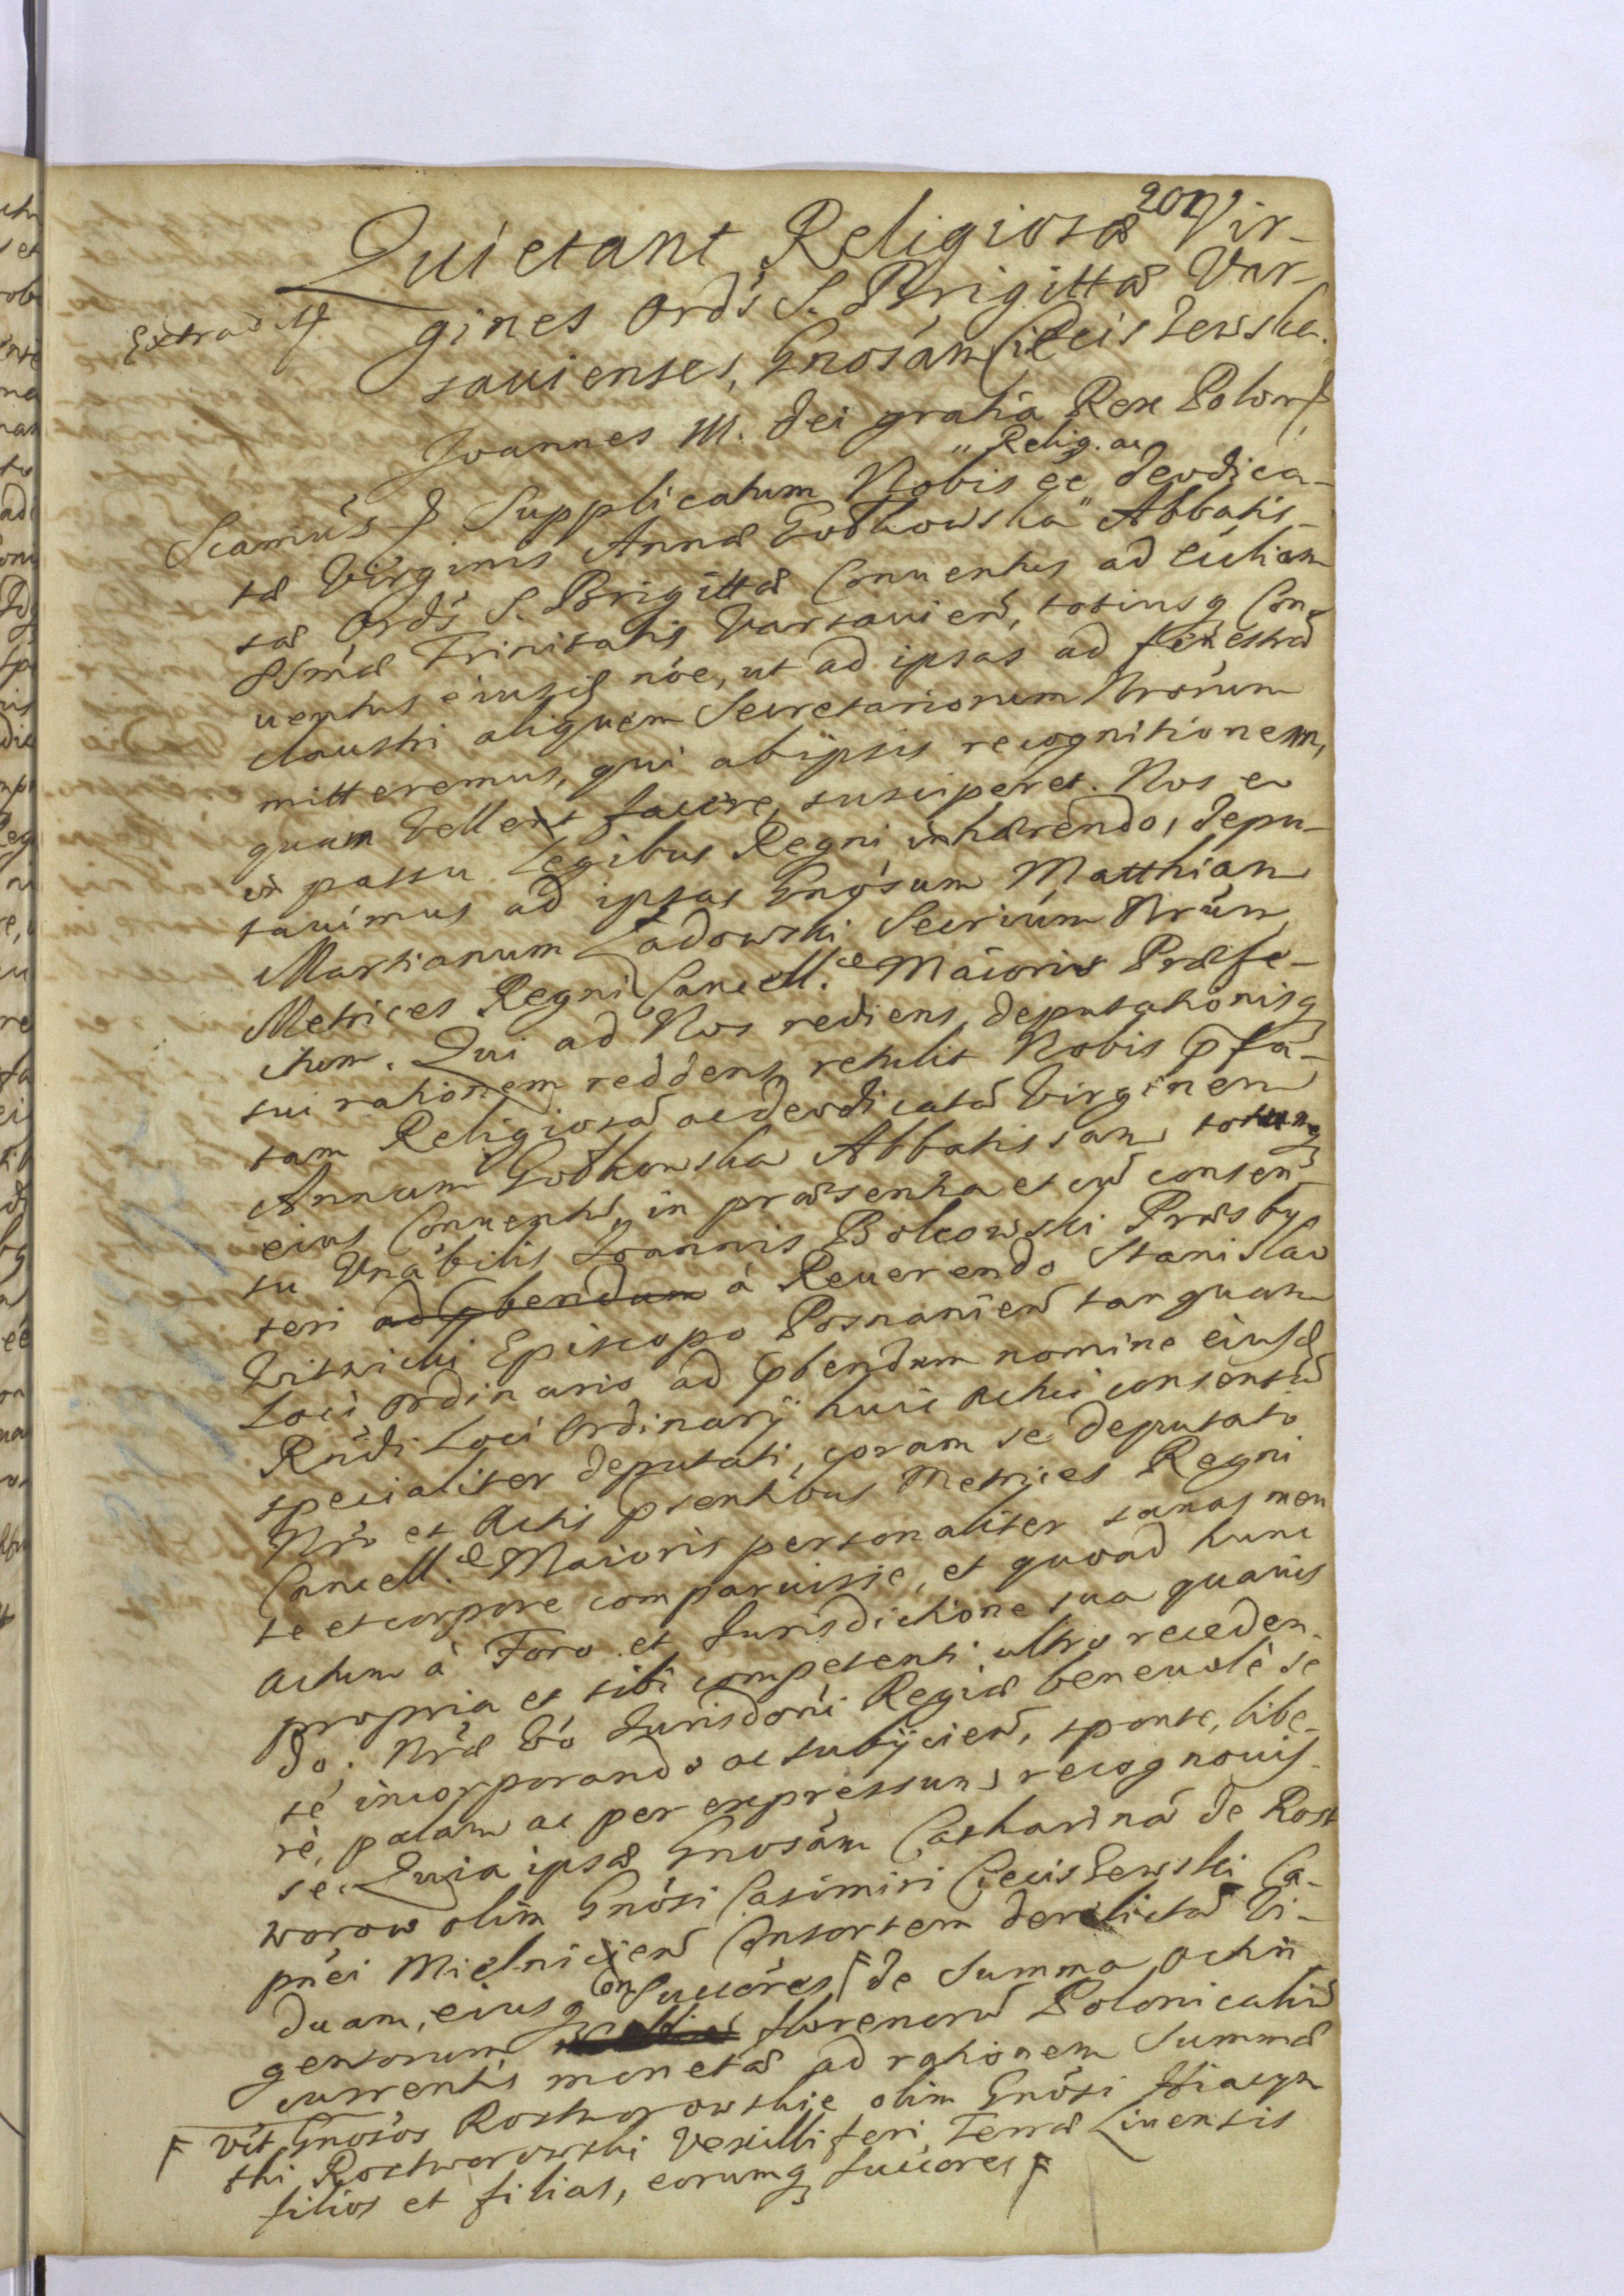 201
Quietant Religiosæ Vir-
gines Ord's S. Brigittæ Var-
Extradit
sauienses, Gnosam Cieciszewska.
Joannes III. Dei gratia Rex Polon
" Relig. ac
Seamus Supplicatum Nobis eē deodica-
tæ Virginis Annæ Godkowska" Abbatis-
sæ Ord's S. Brigittæ Conuentus ad
SSmæ Trinitatis Varsauien, totiusq Con-
uentus eiusd noe, ut ad ipsas ad fenestra
claustri aliquem Secretariorum Nrorum
mitteremus, qui ab ipsis recognitionem,
quam vellent facere, susciperet. Nos eo
in passu Legibus Regni inhærendo, depu-
tauimus ad ipsas Gnosum Matthiam
Martianum Ładowski Secrium Nrum
Metrices Regni Cancell.æ Maioris Præfe-
ctum. Qui ad Nos rediens, deputationisq
sui rationem reddens, retulit Nobis pfa-
tam Religiosa ac deodicata Virginem
Annam Godkowska Abbatissam totumq
eius Conuentu, in præsentia et cu consen-
su Vnabilis Joannis Bolcowski Præsby-
teri ad pbendum à Reuerendo Stanislao
Witwicki Episcopo Posnanien tanquam
Loci Ordinario ad pbendum nomine eiusd
Rndi Loci Ordinarij huic actui consensu
specialiter deputati, coram se deputato
Nro et Actis psentibus Metrices Regni
Cancell.æ Maioris personaliter sanas men
te et corpore comparuisse, et quoad hunc
actum à Foro et Jurisdictione sua quauis
propria et sibi competenti ultro receden-
do; Nræ Vo Jurisdoni Regiæ beneuolè se
sè incorporando ac subijcien, sponte, libe-
rè, palam ac per expressum, recognouis-
se. Quia ipsæ Gnosam Catharina de Rost
worow olim Gnosi Casimiri Cieciszewski Ca-
pnei Mielnicien Consortem derelicta Vi-
duam, eiusq Succores F de Summa Octin
gentorum florenoru Polonicaliu
currentis monetæ ad rationem Summæ
F vit Gnosos Rostworowskie olim Gnosi Hiacyn
thi Rostworowski Vexilliferi Terræ Liuensis
filios et filias, eorumq succores F